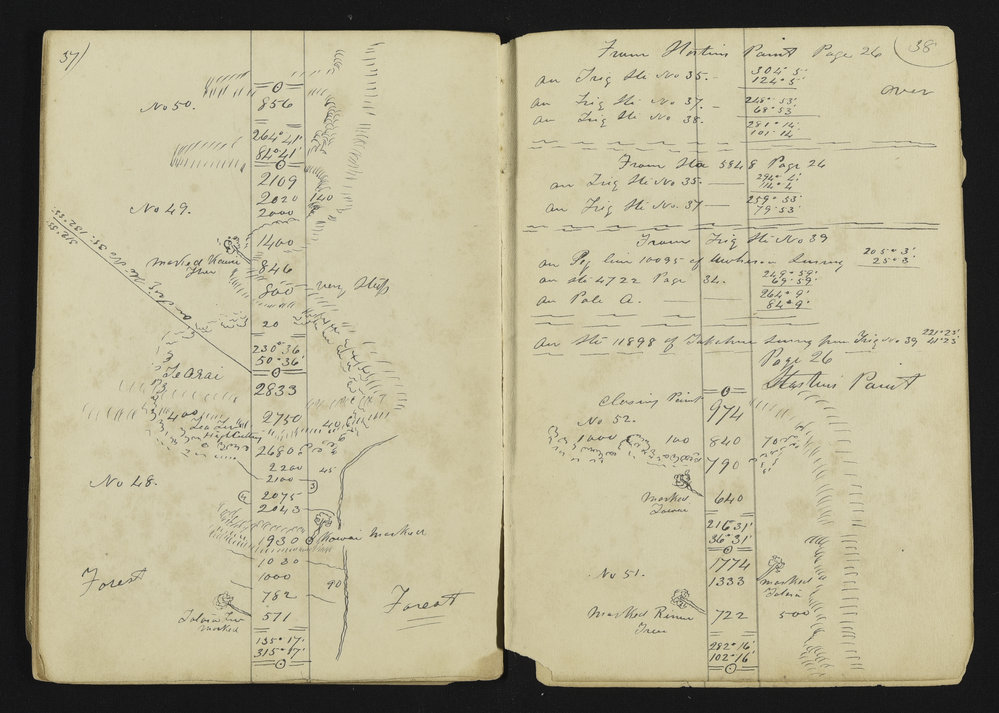 37
No 50.
856
264° 41'
84° 41'
2109
2020 140
No 49.
2000
1400
marked
Tree
846
800 very Steep
20
230° 36'
50° 36'
Te Arai
2833
400
2750 40
2680
2200 45
No 48.
2100
4 3
2075
2043
1930 Kowai marked
1030
Forest
1000 90
782
Forest
571
marked
135° 17'
315° 17'
38
From Hostins Point Page 26
over
on Trig Stn No 35. — 304° 5'
124° 5'
on Trig Stn No 37. — 248° 53'
68° 53'
on Trig Stn No 38. 281° 14'
101° 14'
From Stn 5848 Page 26
on Trig Stn No 35. — 294° 4'
114° 4
on Trig Stn No 37 — 259° 53'
79° 53'
From Trig Stn No 39
on Peg line 10095 of Survey 205° 3'
25° 3'
on Stn 4722 Page 34. — 249° 59'
69° 59'
on Pole A. — 264° 9'
84° 9'
on Stn 11898 of Survey from Trig No 39 221° 23'
41° 23'
Page 26
Hostins Point
Closing Point 974
No 52.
1000 100 840 70
790
marked 640
216° 31'
36° 31'
1774
No 51.
1333 marked
marked Rimu 722 500
Tree
282° 16'
102° 16'